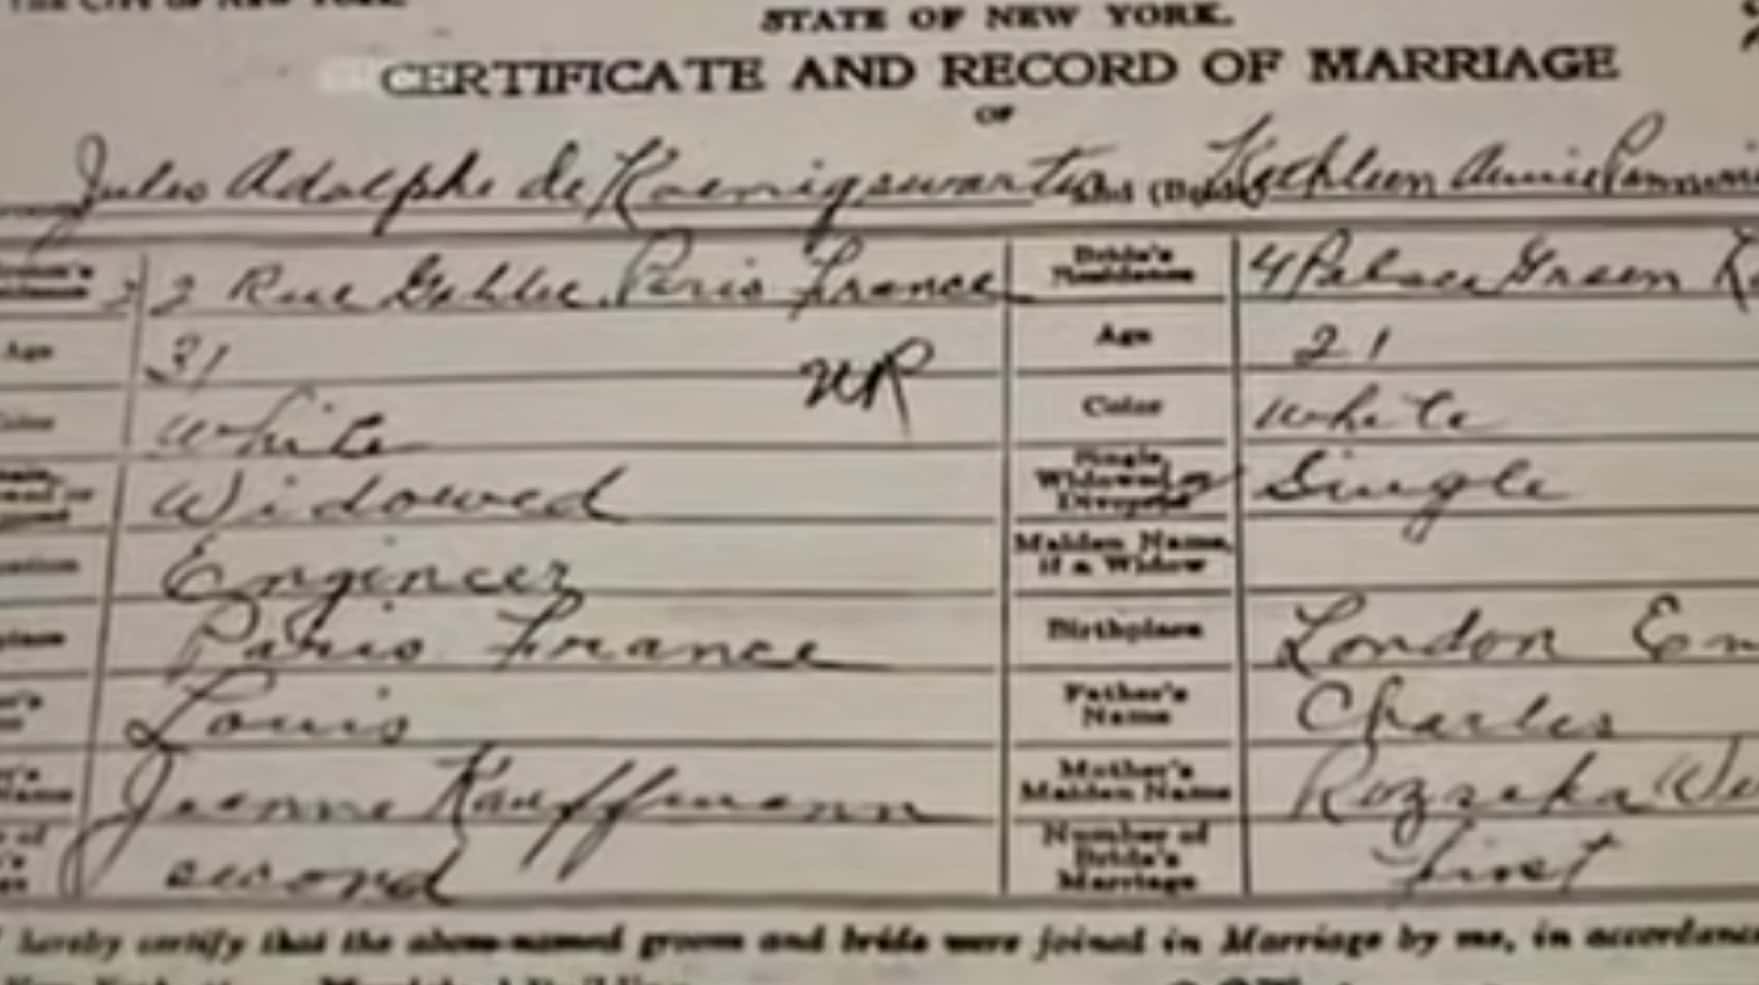 THE CITY OF NEW YORK.
STATE OF NEW YORK.
CERTIFICATE AND RECORD OF MARRIAGE
OF
Jules Adolphe de Koenigswarter and (Bride) Kathleen Annie Pannoni
2 Rue Paris France
Bride's Residence
4 Palace Green
Age
31
NR
Age
21
Color
White
Color
White
Widowed
Single, Widowed or Divorced
Single
Engineer
Maiden Name, if a Widow
Paris France
Birthplace
London En
Louis
Father's Name
Charles
Name
Jeanne Kauffmann
Mother's Maiden Name
Rozsika We
second
Number of Bride's Marriage
First
I hereby certify that the above-named groom and bride were joined in Marriage by me, in accordance